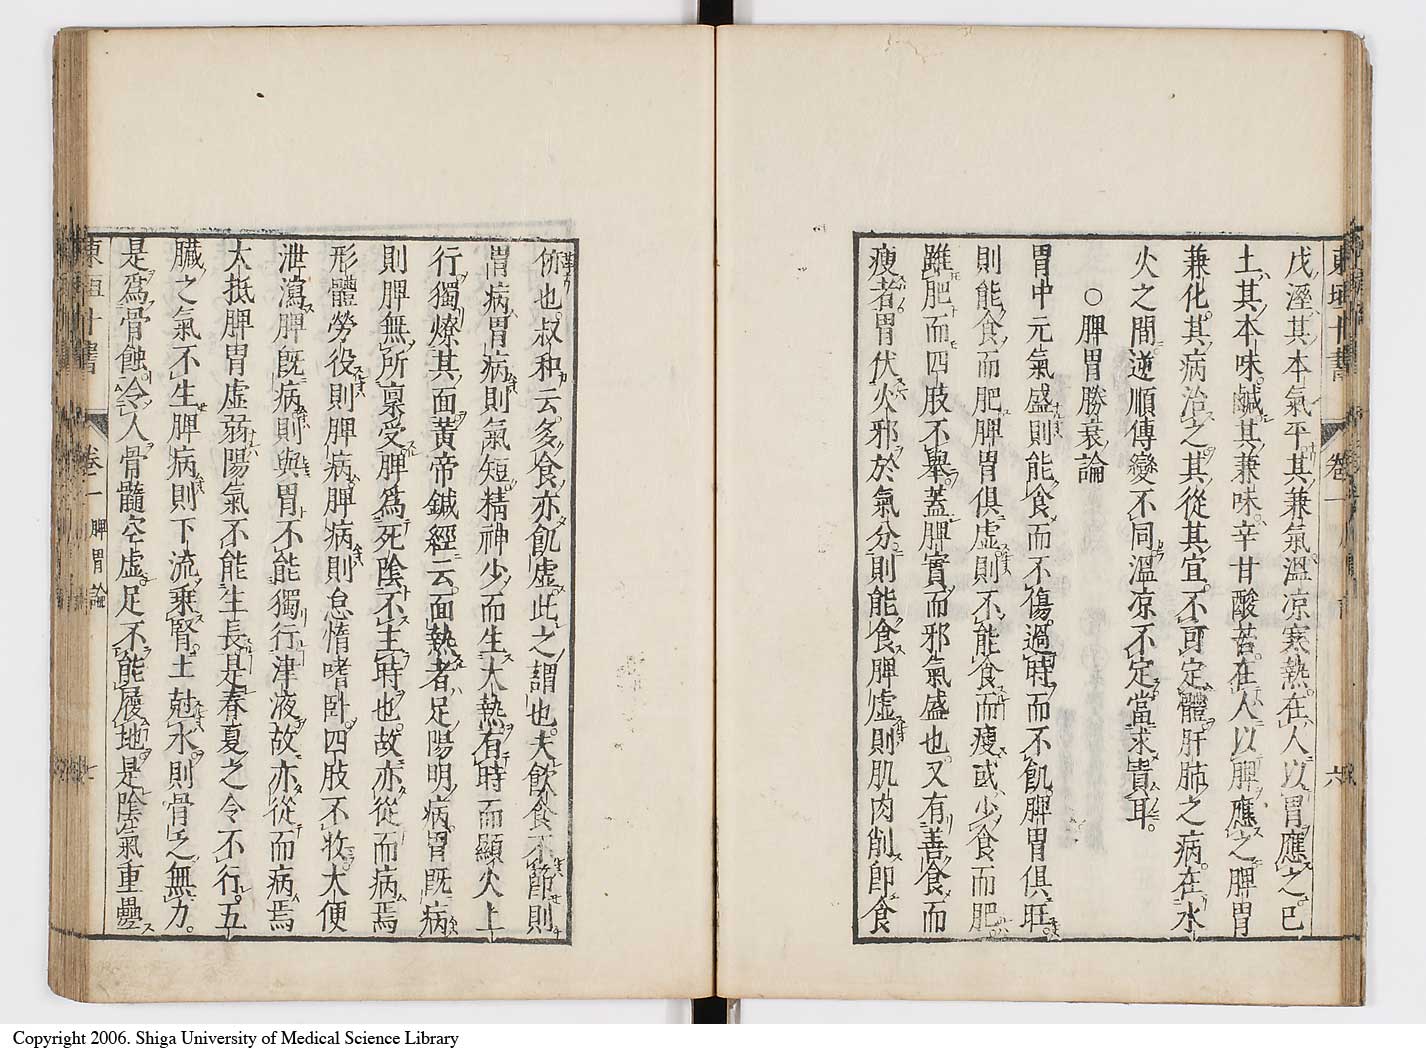 東垣十書 卷一 六
戊溼其本氣平其兼氣溫凉寒熱在人以胃應之巳
土其本味鹹其兼味辛甘酸苦在人以脾應之脾胃
兼化其病治之其從其宜不可定體肝肺之病在水
火之間逆順傳變不同溫凉不定當求責耳。
○脾胃勝衰論
胃中元氣盛則能食而不傷過時而不飢脾胃俱旺
則能食而肥脾胃俱虛則不能食而瘦或少食而肥
雖肥而四肢不舉蓋脾實而邪氣盛也又有善食而
瘦者胃伏火邪於氣分則能食脾虛則肌肉削即食
㑊也叔和云多食亦飢虛此之謂也夫飲食不節則
胃病胃病則氣短精神少而生大熱有時而顯火上
行獨燎其面黃帝鍼經云面熱者足陽明病胃既病
則脾無所禀受脾爲死陰不主時也故亦從而病焉
形體勞役則脾病脾病則怠惰嗜卧四肢不收大便
泄瀉脾既病則與胃不能獨行津液故亦從而病焉
大抵脾胃虛弱陽氣不能生長是春夏之令不行五
臟之氣不生脾病則下流乘腎土尅水則骨乏無力。
是爲骨蝕令人骨髓空虛足不能履地是陰氣重疊
東垣十書 卷一 脾胃論
Copyright 2006. Shiga University of Medical Science Library